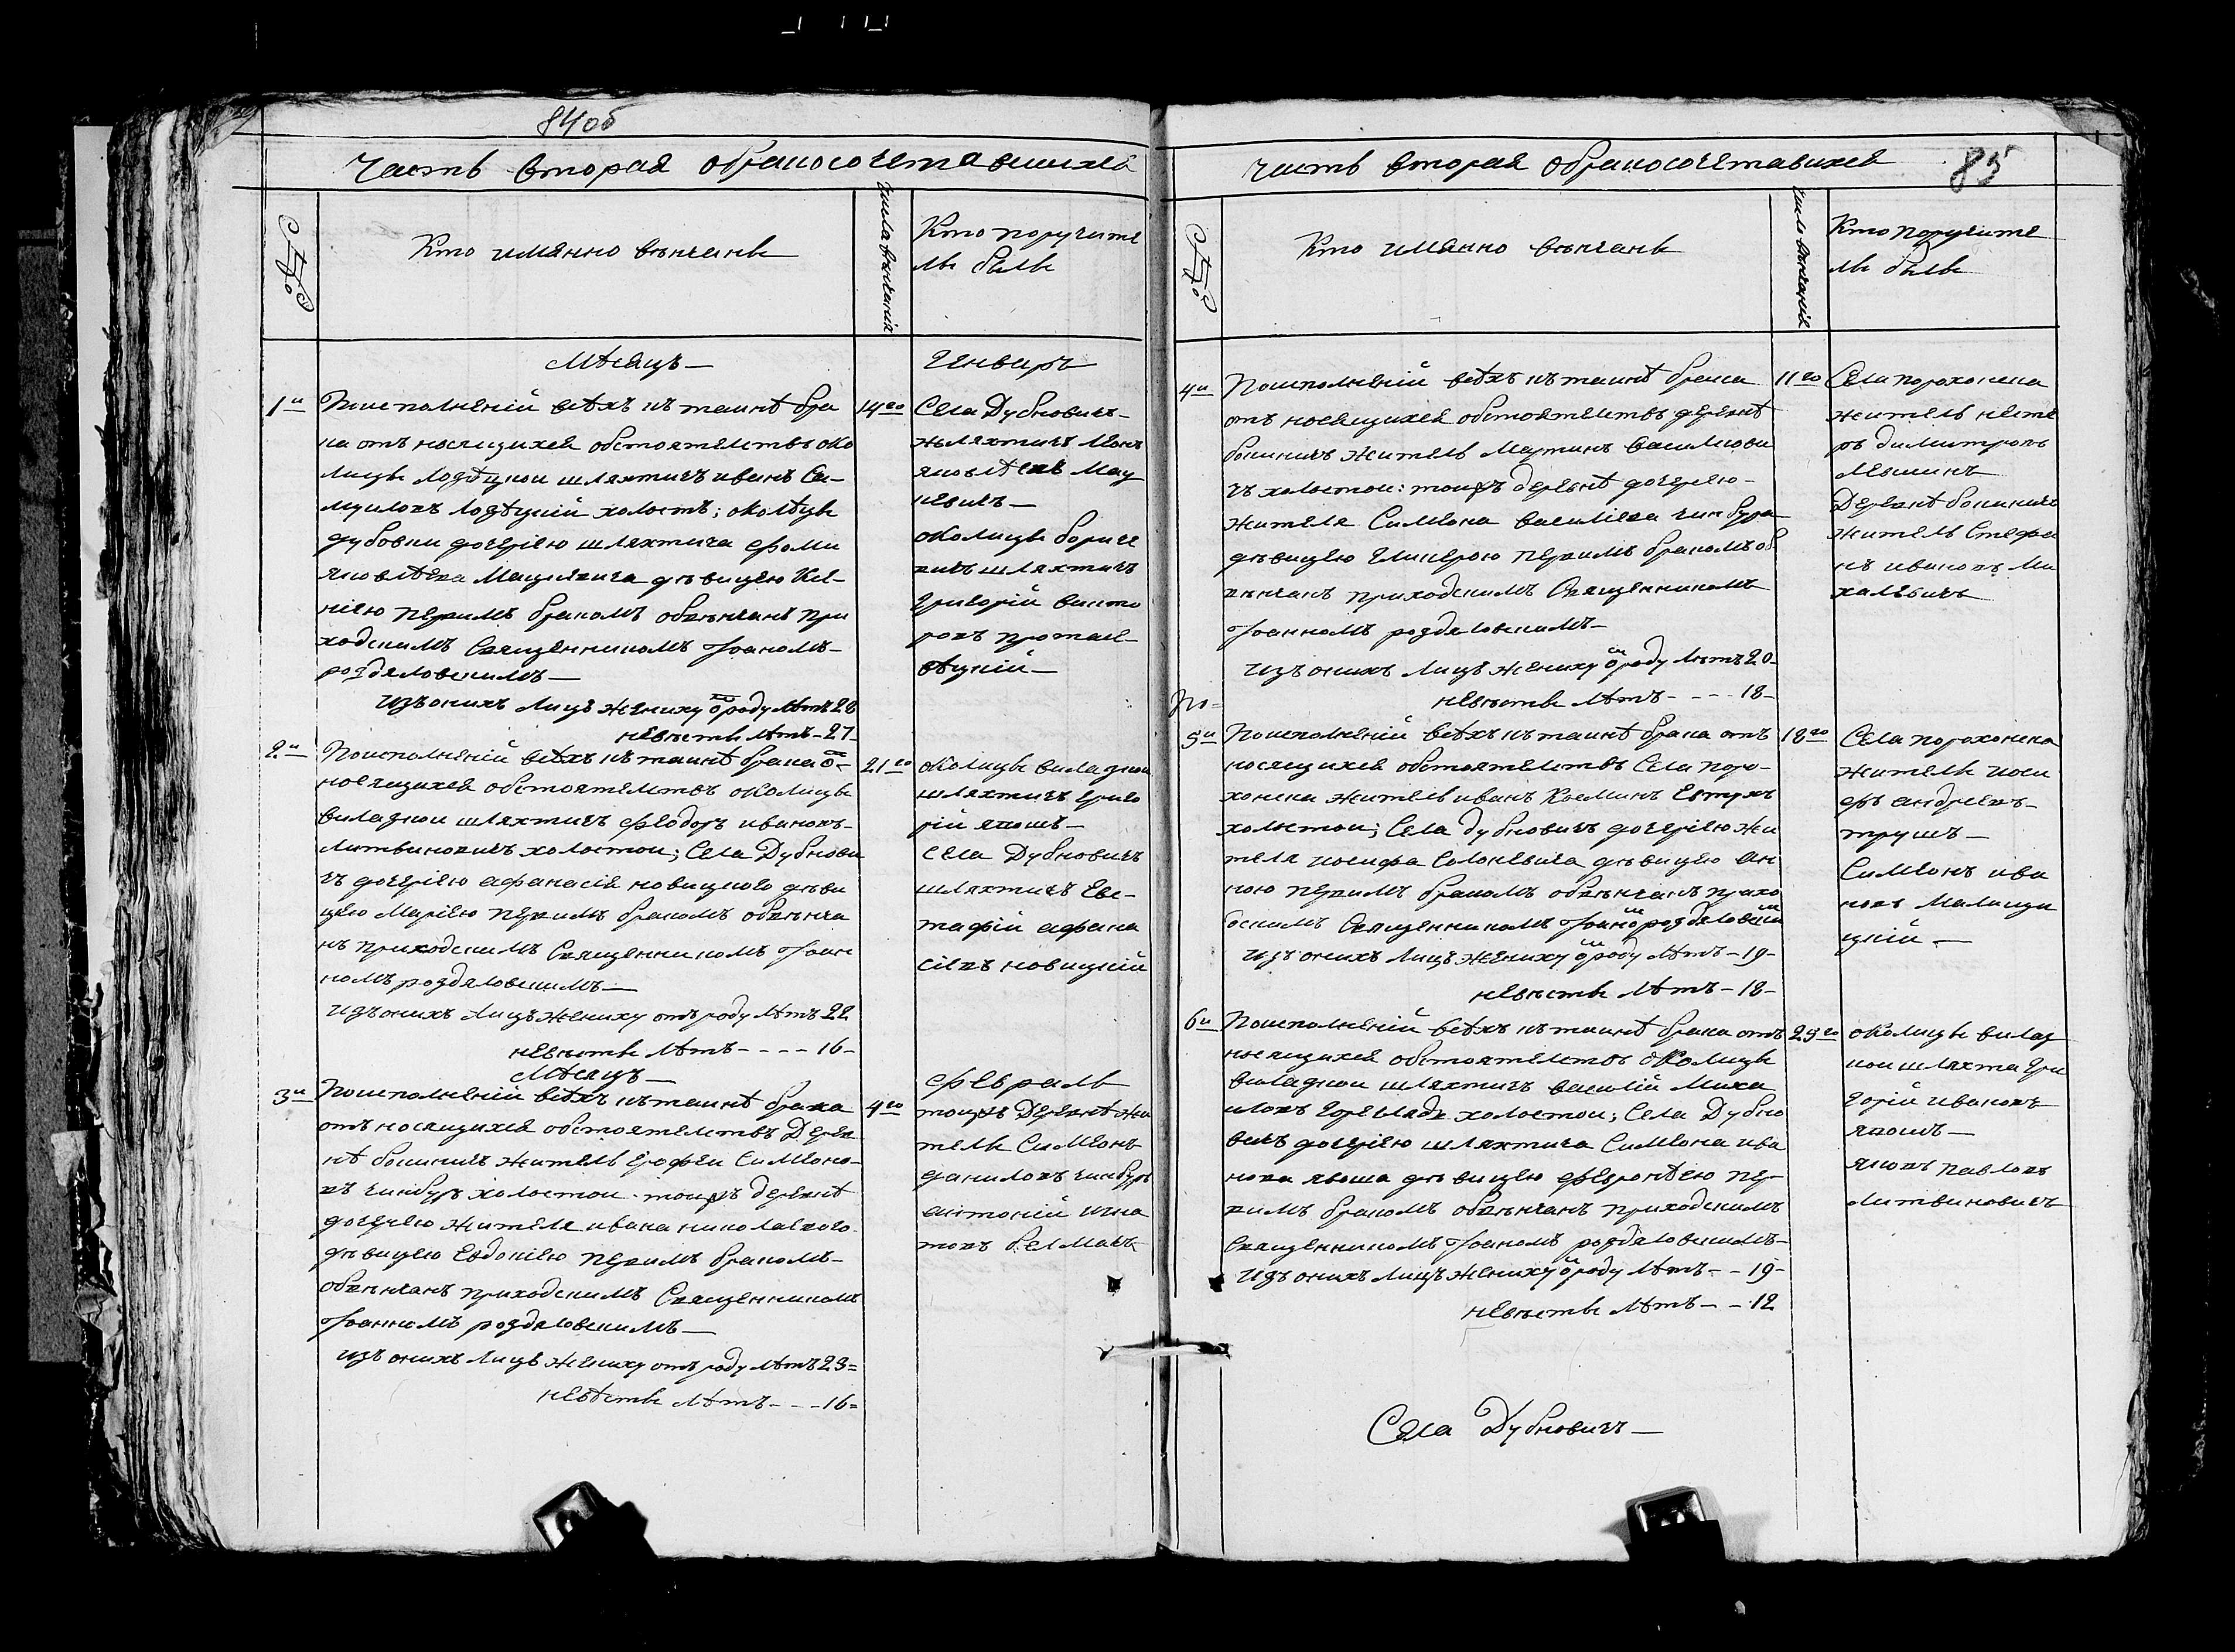 84об
Часть вторая обракосочетавшихся
№
Кто имянно вѣнчанъ
числа вѣнчания
Кто поручите
лѣ былъ
Мѣсяцъ Генварь
1й
Поисполненіи всѣхъ къ таинѣ бра
ка отъ носящихся обстоятелствъ око
лицы Лодѣцкои шляхтичъ иванъ Са-
муиловъ Лодѣцкій холостъ; околѣцы
дубовки дочерію шляхтича фоми
яковлѣва Мацкевича дѣвицею Ксе-
ніею первимъ бракомъ обвѣнчанъ при
ходскимъ Священникомъ Іоаномъ
роздяловскимъ
изъ онихъ лицъ жениху ѿ роду лѣтъ 28
невѣсти лѣтъ 27
14го
Села Дубновичъ
шляхтичъ Леонъ
яковлѣвъ Мац
кевичъ
околицы бориче
вичъ шляхтичъ
Григорій викто
ровъ протас
ѣцкій
2й
Поисполненіи всѣхъ къ таинѣ брака ѿ
носящихся обстоятелствъ околицы
виладкои шляхтичъ феодоръ ивановъ
литвиновичъ холостои; Села Дубнови
чъ дочерію афанасія новицкого дѣви
цею Маріею первимъ бракомъ обвѣнча
нъ приходскимъ Священникомъ Іоан
номъ роздяловскимъ
изъ онихъ лицъ жениху отъ роду лѣтъ 22
невѣсти лѣтъ 16
21го
околицы виладкои
шляхтичъ григо
рій япошъ
Села Дубновичъ
шляхтичъ Евс-
тафій афана
сіевъ новицкій
Мѣсяцъ февраль
3й
Поисполненіи всѣхъ къ таинѣ брака
отъ носящихся обстоятелствъ Дерев
нѣ бокиничъ житель Ерофеи Симеоно-
въ чинбуръ холостои тоижъ деревнѣ
дочерею жителя ивана николаевого
дѣвицею Евдокіею первимъ бракомъ
обвѣнчанъ приходскимъ Священникомъ
Іоанномъ роздяловскимъ
изъ онихъ лицъ жениху отъ роду лѣтъ 23
невѣсти лѣтъ 16
4го
тоижъ Деревнѣ жи
тели Симеонъ
даниловъ чинбуръ
антоній игна
товъ белмачъ
Часть вторая обракосочетавшихся
85
№
Кто имянно вѣнчанъ
число вѣнчания
Кто поручите
лѣ былъ
4й
Поисполненіи всѣхъ къ таинѣ брака
отъ носящихся обстоятелствъ деревнѣ
бокиничъ житель Мартинъ василиови
чъ холостои: тоижъ деревнѣ дочерею
жителя Симеона василіева чинбура
дѣвицею гликерою первимъ бракомъ об
вѣнчанъ приходскимъ Священникомъ
Іоанномъ роздяловскимъ
изъ онихъ лицъ жениху ѿ роду лѣтъ 20
невѣсти лѣтъ 18
11го
Села порохонска
житель несте
ръ димитровъ
левшинъ
Деревнѣ бокиничъ
житель Стефа
нъ ивановъ ми
халевичъ
5й
Поисполненіи всѣхъ къ таинѣ брака отъ
носящихся обстоятелствъ Села поро-
хонска житель иванъ Козминъ Евтухъ
холостои; Села дубновичъ дочерію жи
теля иосифа Солоневича дѣвицею ан
ною первимъ бракомъ обвѣнчанъ прихо
дскимъ Священникомъ Іоаномъ роздяловским
изъ онихъ лицъ жениху ѿ роду лѣтъ 19
невѣсти лѣтъ 18
18го
Села порохонска
жители иоси
фъ андреевъ
трушъ
Симеонъ ива
новъ Малищи
цкій
6й
Поисполненіи всѣхъ къ таинѣ брака отъ
носящихся обстоятелствъ околицы
виладкои шляхтичъ василій миха
иловъ холостои; Села Дубно
вичъ дочерію шляхтича Симеона ива
нова япоша дѣвицею февронѣею пер
вимъ бракомъ обвѣнчанъ приходскимъ
Священникомъ Іоаномъ роздяловскимъ
изъ онихъ лицъ жениху ѿ роду лѣтъ 19
невѣсти лѣтъ 12
23го
околицы вилад
кои шляхта гри
горій ивановъ
япошъ
яковъ павловъ
литвиновичъ
Села Дубновичъ